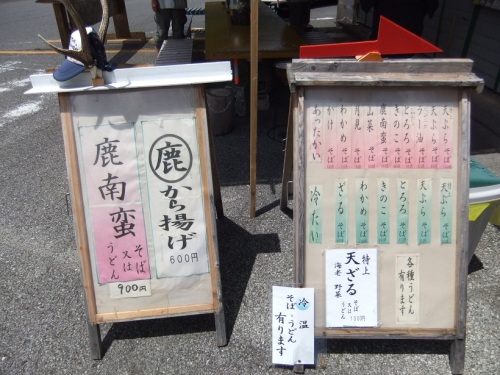 鹿から揚げ
600円
鹿南蛮
そば
又は
うどん
900円
天ぷら そば
天ぷら そば
とろろ そば
きのこ そば
鹿南蛮 そば
山菜 そば
月見 そば
わかめ そば
かけ そば
あったかい
天ぷら そば
天ぷら そば
とろろ そば
きのこ そば
わかめ そば
ざる そば
冷たい
各種うどん
有ります
特上
天ざる
そば
又は
うどん
海老 野菜
冷 温
そば・うどん
有ります